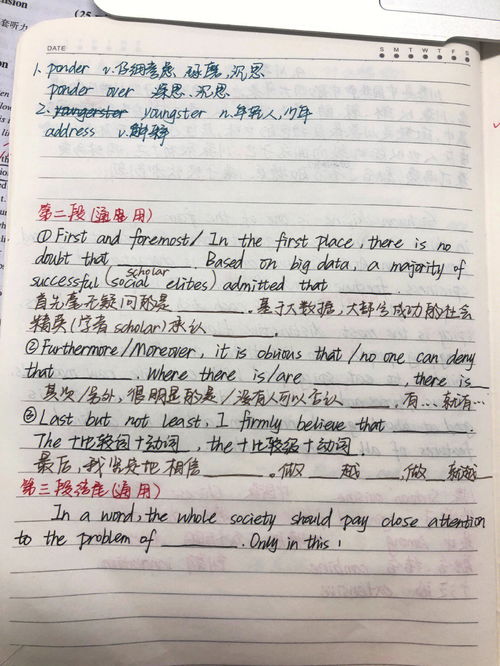 nsion
(25
套听力
DATE
S M T W T F S
1. ponder v.仔细考虑 琢磨,沉思
ponder over 深思.沉思
2. youngerster youngster n.年轻人,少年
address v.解释
第二段(通应用)
①First and foremost/ In the first place, there is no
doubt that ______. Based on big data, a majority of
scholar
successful (social elites) admitted that ______.
首先毫无疑问的是______. 基于大数据,大部分成功的社会
精英(学者 scholar)承认______.
②Furthermore/Moreover, it is obvious that /no one can deny
that ______. Where there is/are ______, there is
其次/另外,很明显的是/没有人可以否认______. 有...就有...
③Last but not least, I firmly believe that ______.
The +比较级+动词, the +比较级+动词.
最后,我坚定地相信______. 做__越__,做__就越
第三段结尾(通用)
In a word, the whole society should pay close attention
to the problem of ______. Only in this